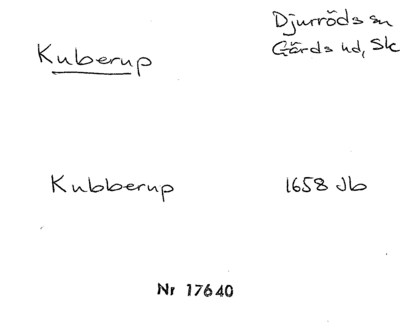 Kuberup
Djurröds sn
Gärds hd, Sk
Kubberup
1658 Jb
Nr 17640